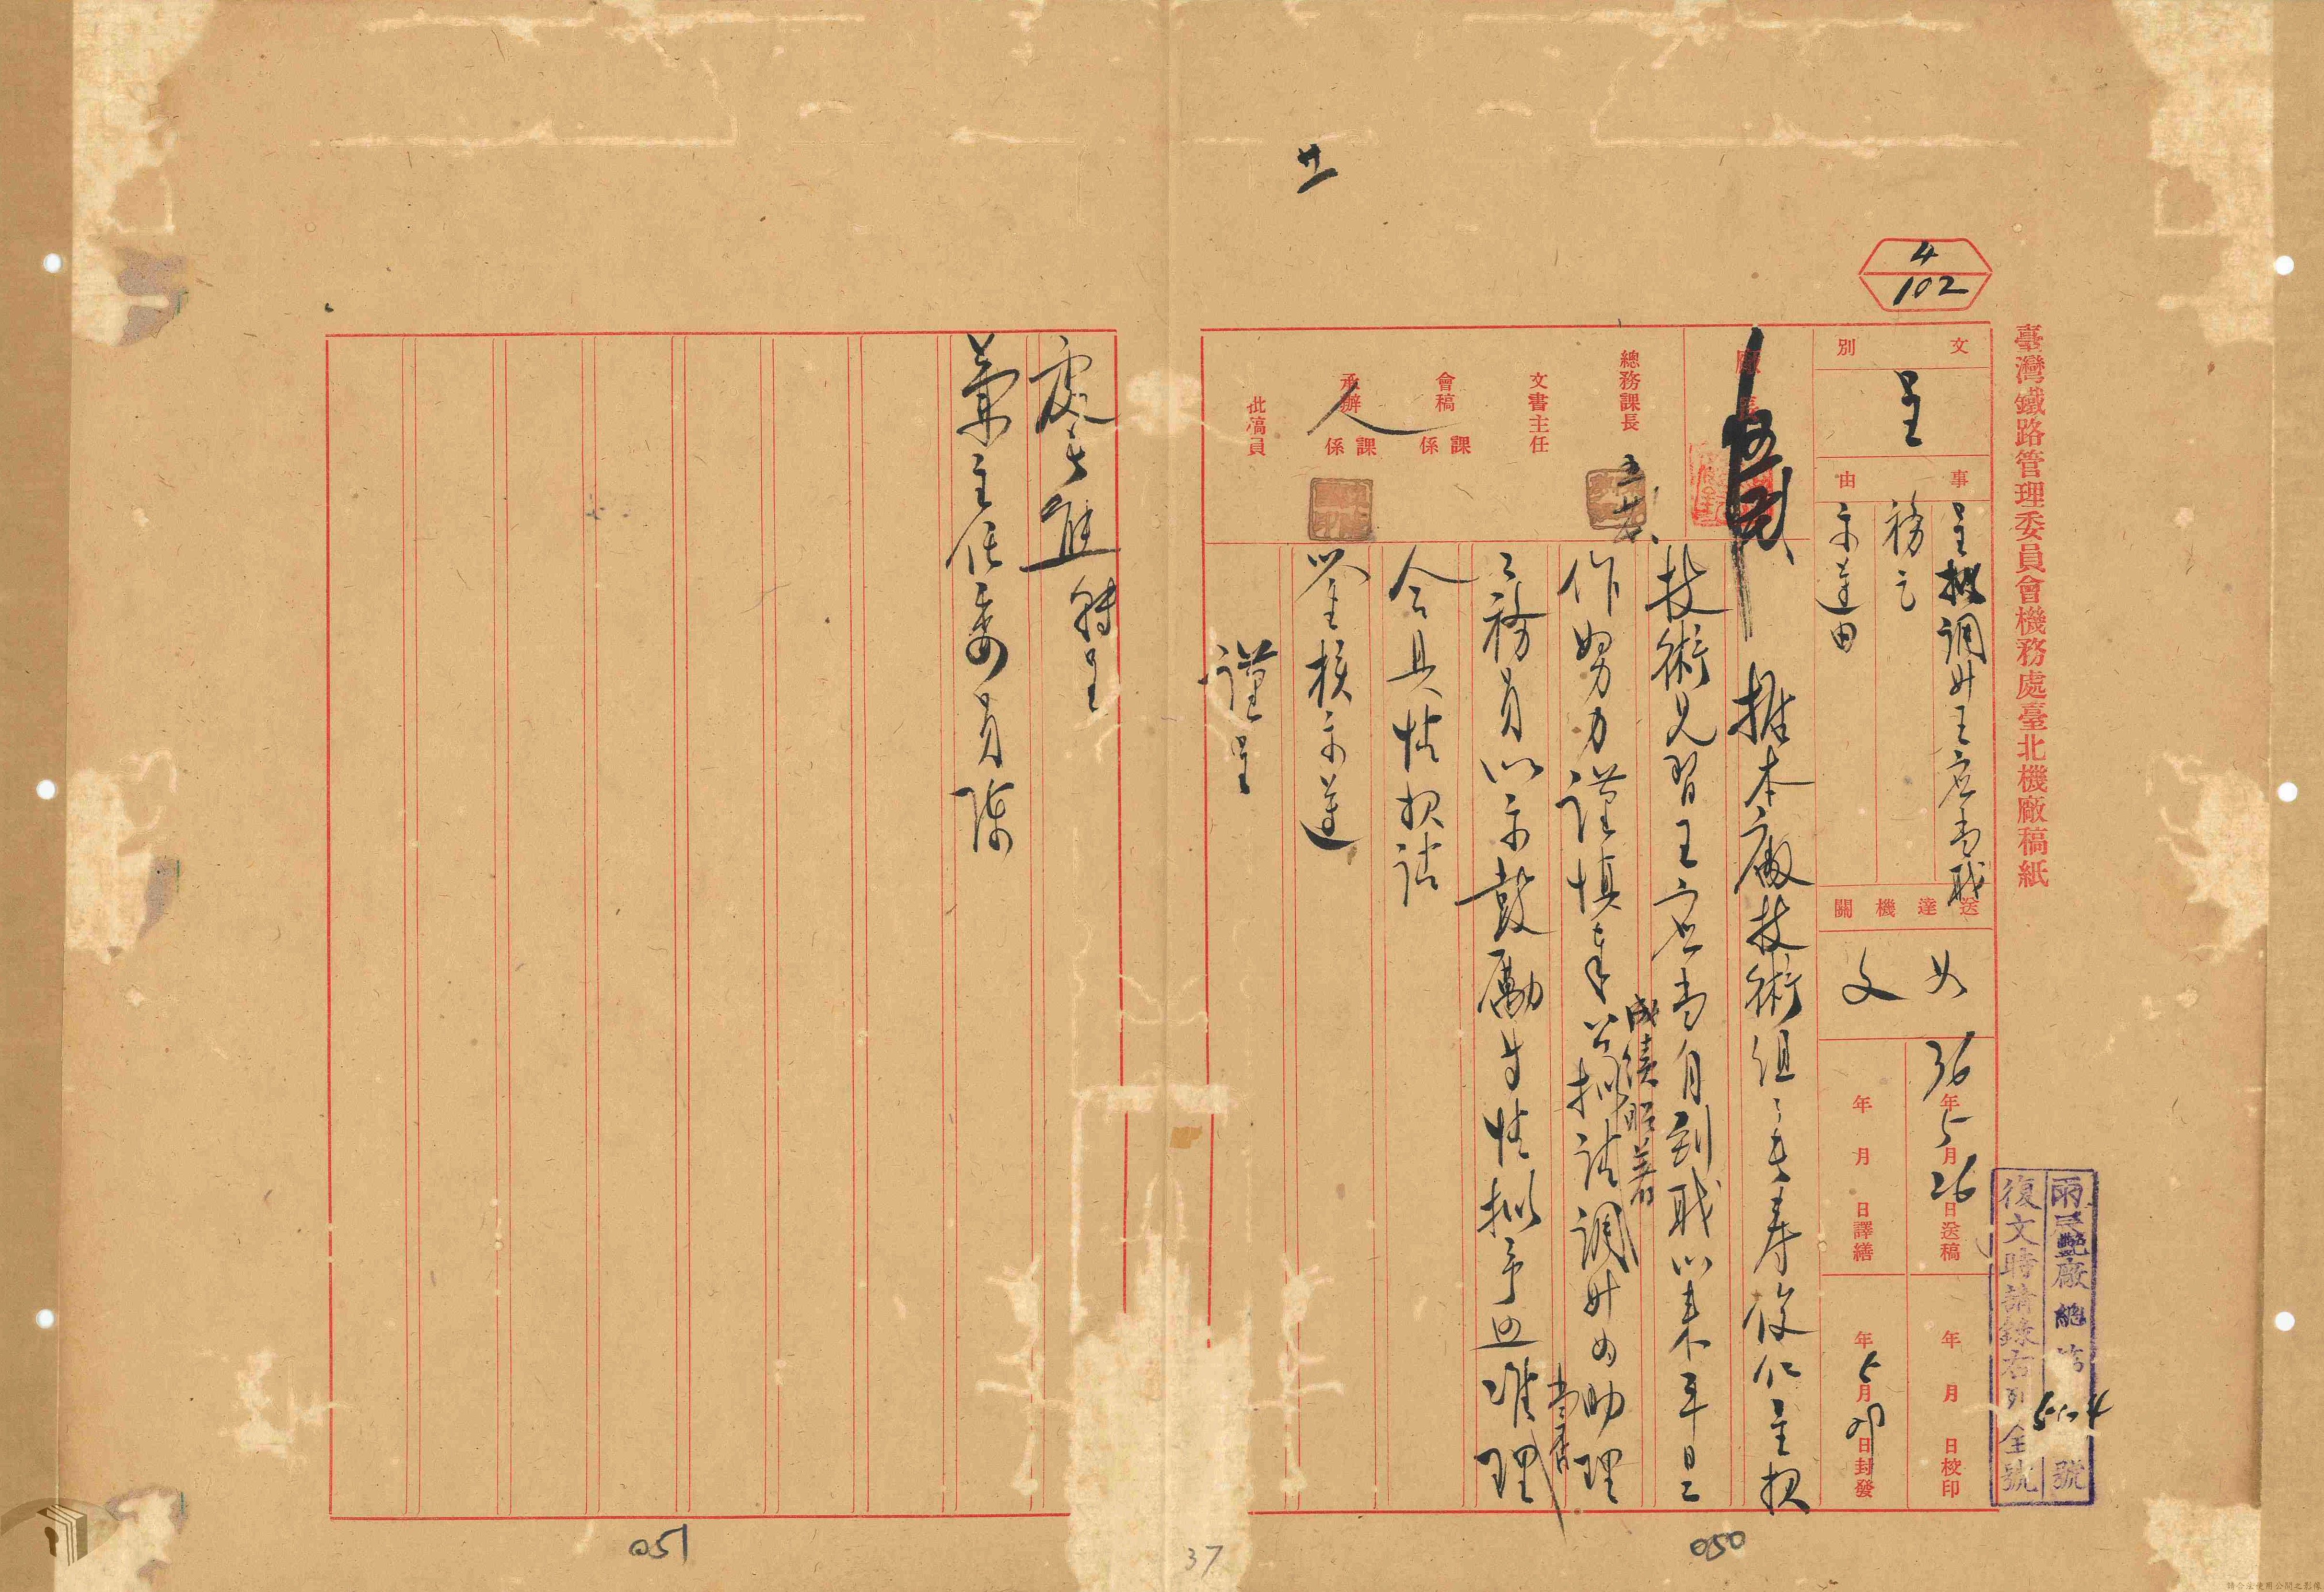 廿一
4
102
臺灣鐵路管理委員會機務處臺北機廠稿紙
文別
呈
事由
呈擬調升王宏為職
務乞
示遵由
送達機關
如
文
36年5月26日送稿
年 月 日校印
年 月 日譯繕
年5月 日封發
廠長
總務課長
文書主任
會稿 課係
承辦 課係
批稿員
據本廠技術組長李俊仁呈報
技術見習王宏為自到職以來平日工
作努力謹慎奉公擬請調升為助理
成績昭著
工務員以示鼓勵等情擬予照准理
當否
合具情報請
鑒核示遵
謹呈
處長 轉呈
兼主任委員陳
廠總 號
復文時請錄右列全號
050
051
37